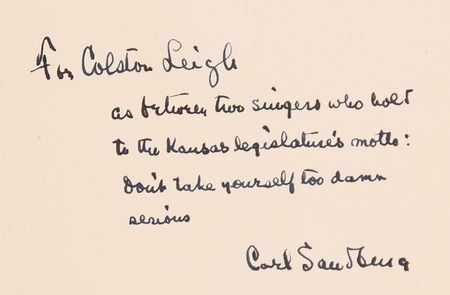 For Colston Leigh
as between two singers who hold
to the Kansas legislature's motto:
Don't take yourself too damn
serious
Carl Sandburg